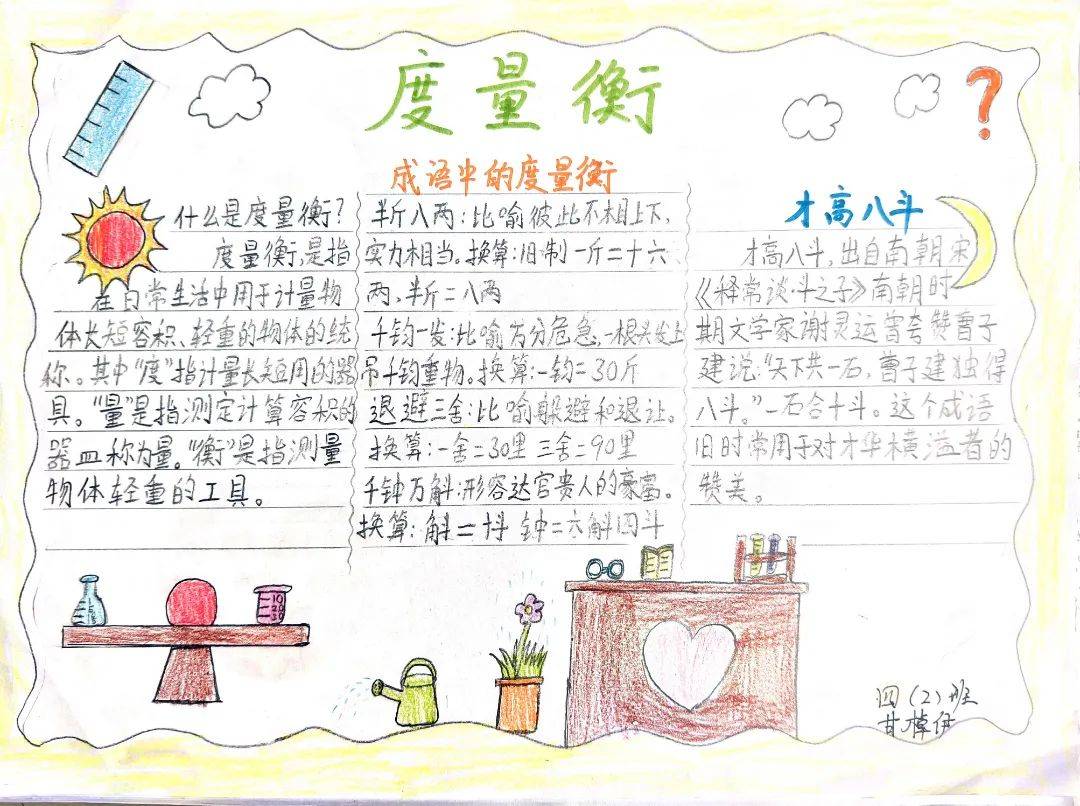 度量衡
什么是度量衡?
度量衡,是指
在日常生活中用于计量物
体长短容积、轻重的物体的统
称。其中“度”指计量长短用的器
具。“量”是指测定计算容积的
器皿称为量。“衡”是指测量
物体轻重的工具。
成语中的度量衡
半斤八两:比喻彼此不相上下,
实力相当。换算:旧制一斤=十六
两,半斤=八两
千钧一发:比喻万分危急,一根头发上
吊千钧重物。换算:一钧=30斤
退避三舍:比喻躲避和退让。
换算:一舍=30里 三舍=90里
千钟万斛:形容达官贵人的豪富。
换算:斛=斗 钟=六斛四斗
才高八斗
才高八斗,出自南朝宋
《释常谈·斗之子》南朝时
期文学家谢灵运曾夸赞曹子
建说:“天下共一石,曹子建独得
八斗。”一石合十斗。这个成语
旧时常用于对才华横溢者的
赞美。
10
20
30
四(2)班
甘 伊